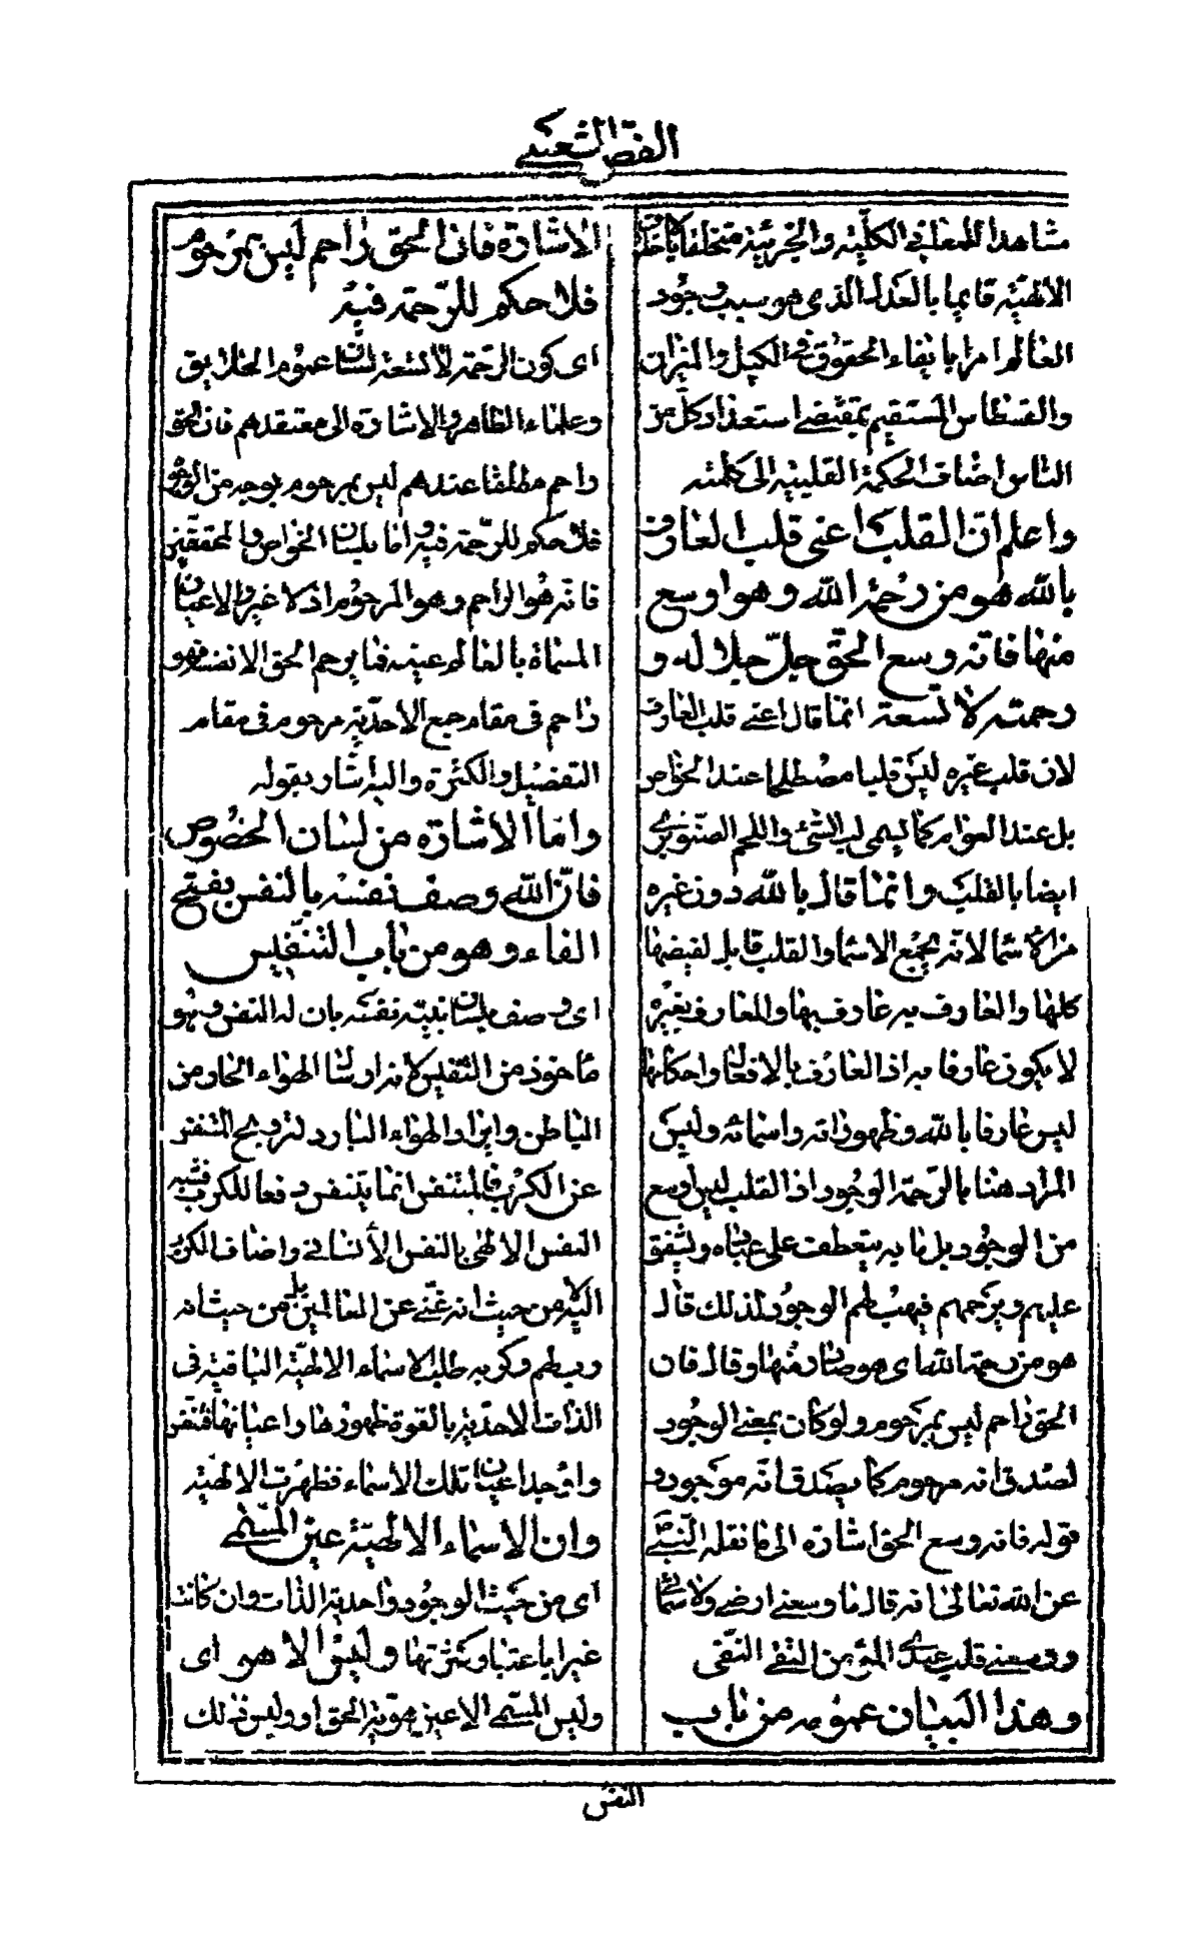 الفص الشعيبي
مشاهدا للمعاني الكلية والجزئية متخلقا باخلاق
الالهية قايما بالعدل الذي هو سبب وجود
العالم امرا بايفاء الحقوق في الكيل والميزان
والقسطاس المستقيم بمقتضى استعداد كل من
الناس اضاف الحكمة القلبية الى كلمته
واعلم ان القلب اعنى قلب العارف
بالله هو من رحمة الله وهو اوسع
منها فانه وسع الحق جل جلاله و
رحمته لا تسعه انما قال اعنى قلب العارف
لان قلب غيره ليس قلبا مصطلحا عند الخواص
بل عند العوام كما يسمى لب الشئ واللحم الصنوبري
ايضا بالقلب وانما قال بالله دون غيره
من الاسماء لانه مجمع الاسما والقلب قابل لفيضها
كلها والعارف به عارف بها والعارف بغيره
لا يكون عارفا به اذ العارف بالافعال واحكامها
ليس عارفا بالله وظهور ذاته واسمائه وليس
المراد هنا بالرحمة الوجود اذ القلب ليس اوسع
من الوجود بل ما به يتعطف على عباده ويشفق
عليهم ويرحمهم فيهب لهم الوجود لذلك قال
هو من رحمة الله اى هو صادر منها وقال فان
الحق راحم ليس بمرحوم ولو كان بمعنى الوجود
لصدق انه مرحوم كما يصدق انه موجود و
قوله فانه وسع الحق اشارة الى ما نقله النبي
عن الله تعالى انه قال ما وسعنى ارضى ولا سمائى
ووسعنى قلب عبدى المؤمن التقى النقى
وهذا البيان عموم من باب
الاشارة فان الحق راحم ليس بمرحوم
فلا حكم للرحمة فيه
اى كون الرحمة لا تسعه لسان عموم الخلايق
وعلماء الظاهر والاشارة الى معتقدهم فان الحق
راحم مطلقا عندهم ليس بمرحوم بوجه من الوجوه
فلا حكم للرحمة فيه واما بلسان الخواص والمحققين
فانه هو الراحم وهو المرحوم اذ لا غير والاعيان
المسماة بالعالم عينه فما يرحم الحق الا نفسه فهو
راحم في مقام جمع الاحدية مرحوم في مقام
التفصيل والكثرة واليه اشار بقوله
واما الاشارة من لسان الخصوص
فان الله وصف نفسه بالنفس بفتح
الفاء وهو من باب التنفيس
اى وصف بلسان نبيه نفسه بان له النفس وهو
ماخوذ من التنفيس لانه ارسال الهواء الحار من
الباطن وايراد الهواء البارد لترويح المتنفس
عن الكرب فالمتنفس انما يتنفس دفعا للكرب فشبه
النفس الالهى بالنفس الانسانى واضاف الكرب
اليه من حيث انه غنى عن العالمين بل من حيث انه
رب لهم وكربه طلب الاسماء الالهية الباقية في
الذات الاحدية بالقوة ظهورها واعيانها فتنفس
واوجد اعيان تلك الاسماء فظهرت الالهية
وان الاسماء الالهية عين المسمى
اى من حيث الوجود واحدية الذات وان كانت
غيرا باعتبار كثرتها وليس الا هو اى
وليس المسمى الا عين هوية الحق او وليس ذلك
النفس